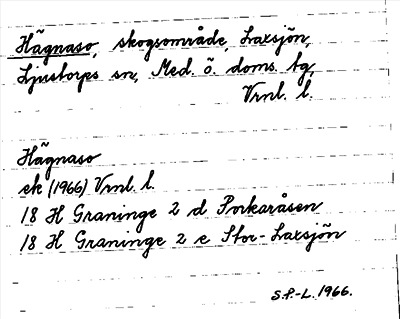 Hägnaso, skogsområde, Laxsjön,
Ljustorps sn, Med. ö. doms. tg,
Vrnl. l.
Hägnaso
ek (1966) Vrnl. l.
18 H Graninge 2 d Porkaråsen
18 H Graninge 2 e Stor-Laxsjön
S.P.-L. 1966.